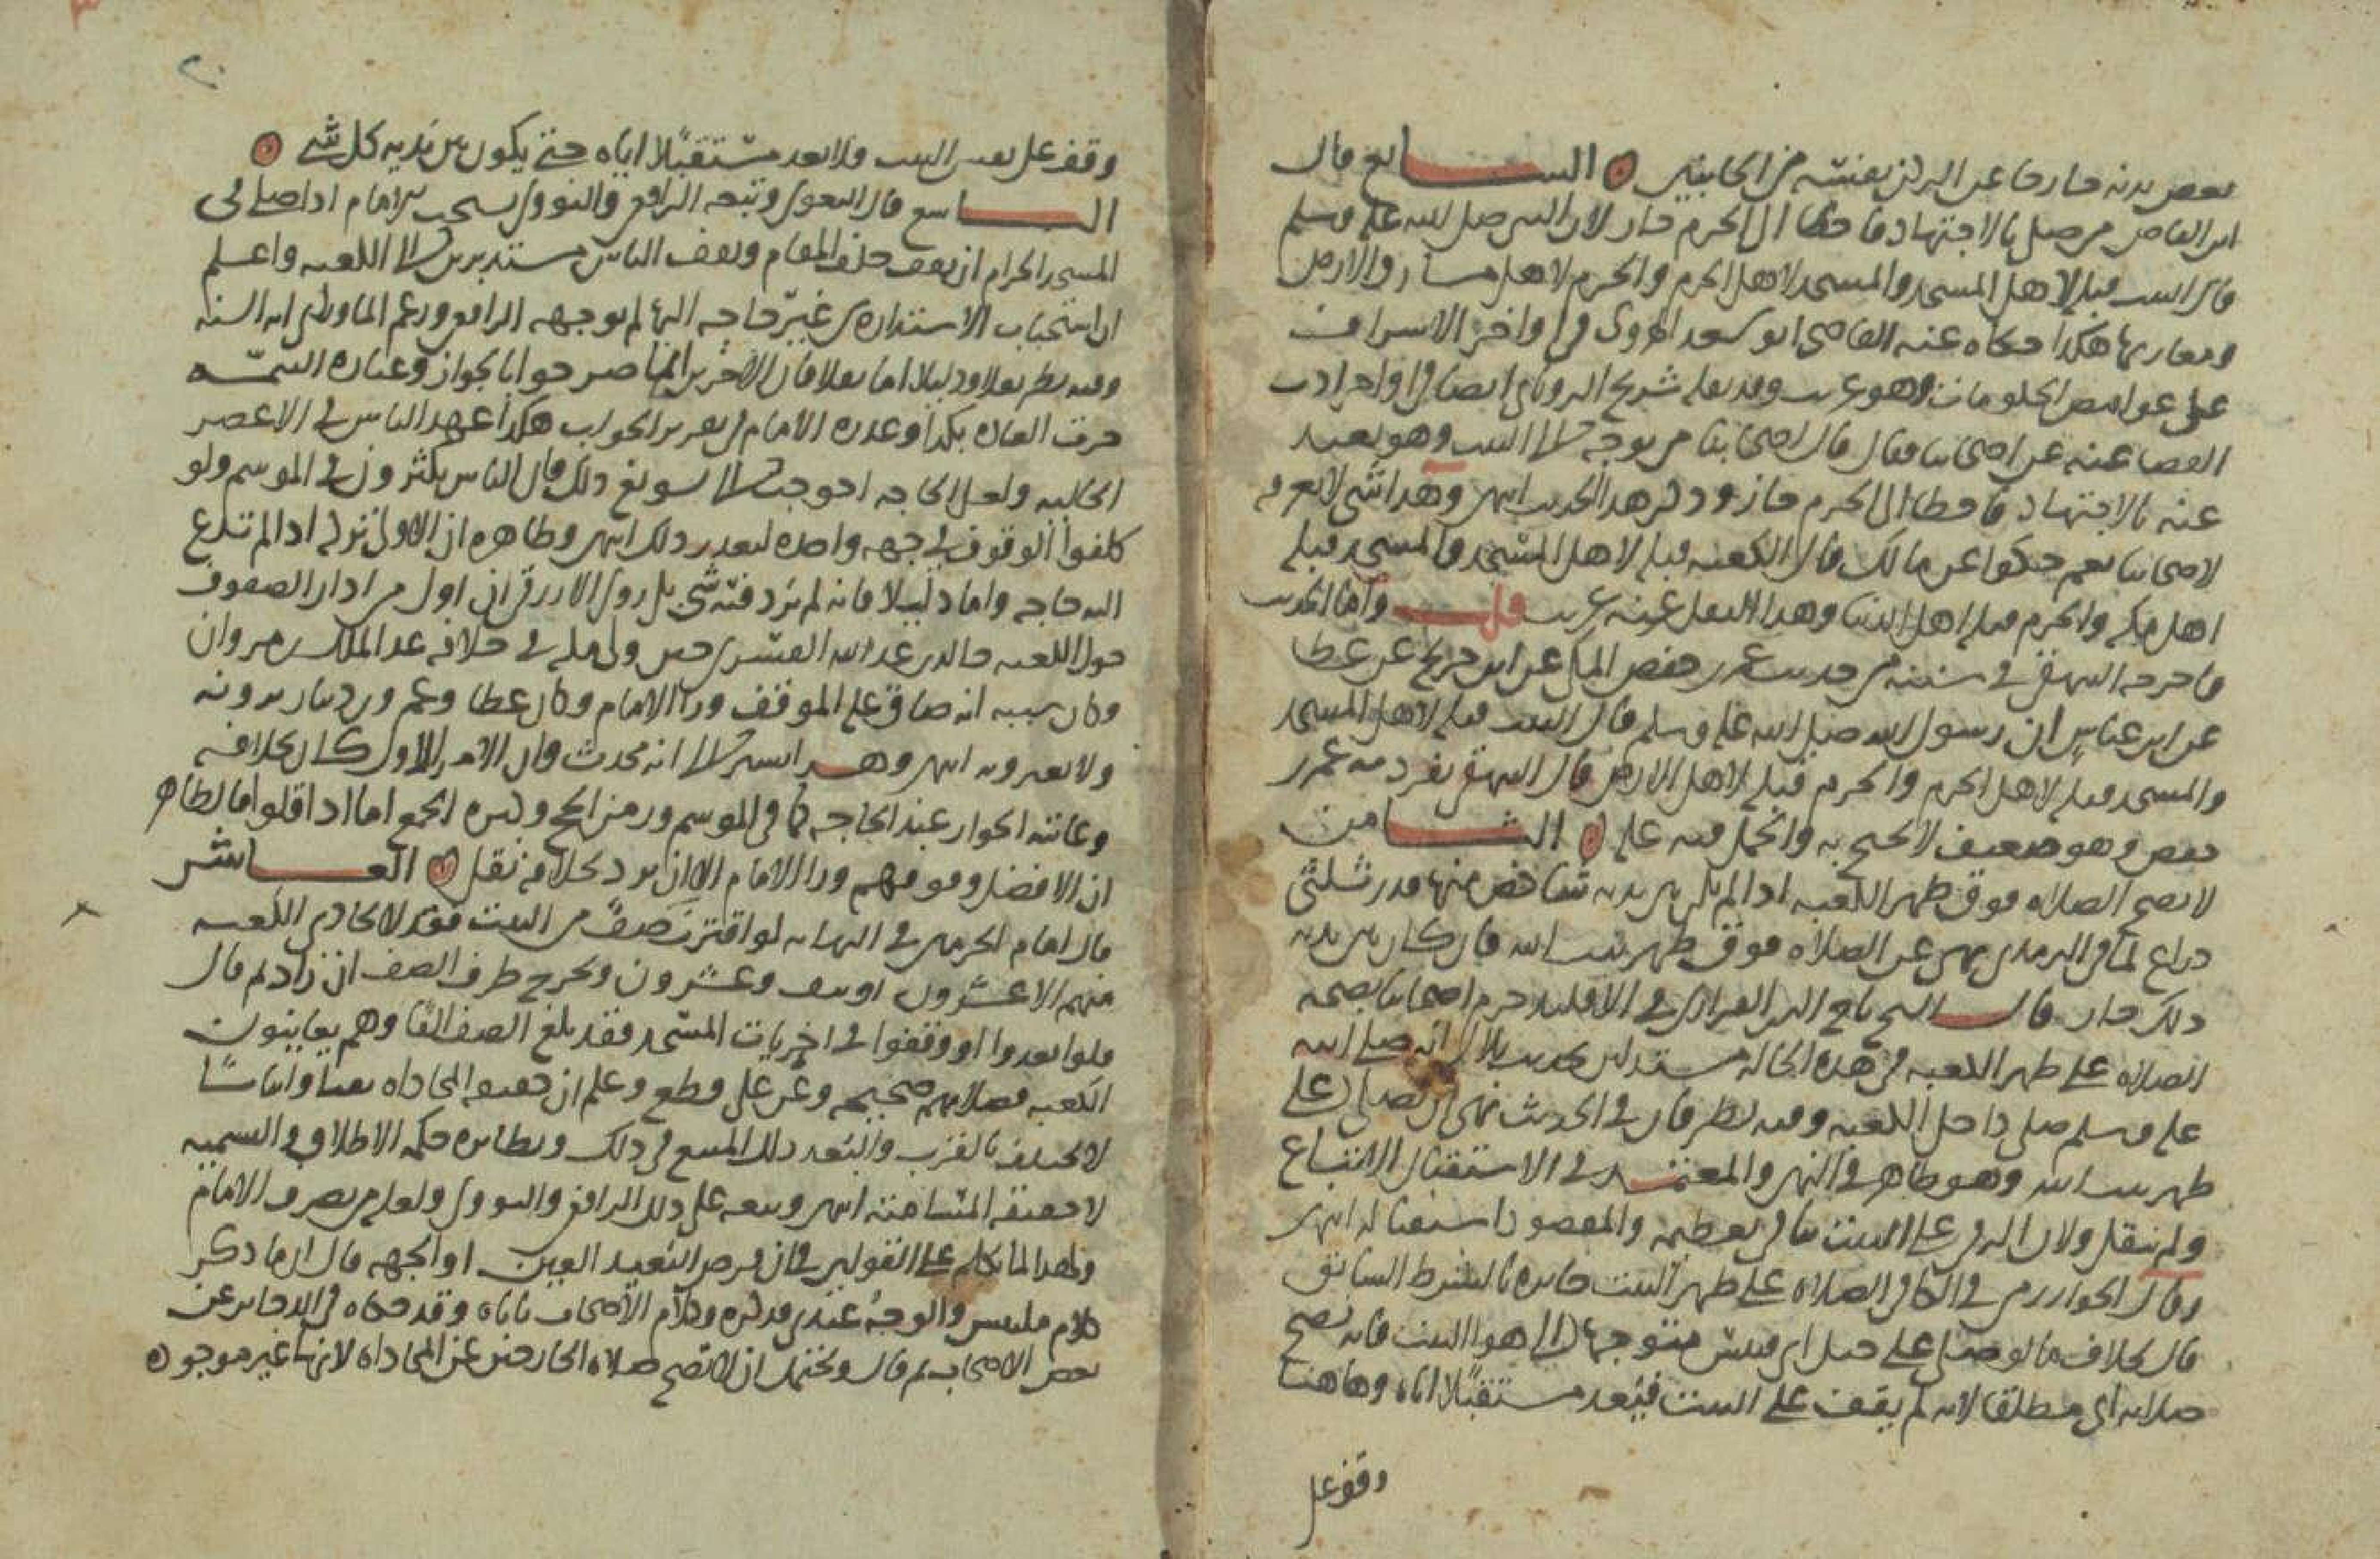 بعض بدنه خارجا عن الركن بعينه من الجانبين ۞ السابع قال
ابن القاص من صلى بالاجتهاد فأخطأ الى الحرم جاز لان النبي صلى الله عليه وسلم
قال البيت قبلة لاهل المسجد والمسجد لاهل الحرم والحرم لاهل مشارق الارض
ومغاربها هكذا حكاه عنه القاضي ابو سعد الهروي في اواخر الاشراف
على غوامض الحكومات وهو غريب وقد نقله شريح الروياني ايضا في اواخر ادب
القضا عنه عن اصحابنا فقال قال اصحابنا من توجه الى البيت وهو بعيد
عنه بالاجتهاد فأخطأ الى الحرم جاز وذكر هذا الحديث انتهى وهذا شي لا يعرفه
لاصحابنا نعم حكوا عن مالك قال الكعبة قبلة لاهل المسجد والمسجد قبلة
اهل مكة والحرم قبلة اهل الدنيا وهذا النقل عنه غريب قلت واما الحديث
فأخرجه البيهقي في سننه من حديث عمر بن حفص المكي عن ابن جريج عن عطا
عن ابن عباس ان رسول الله صلى الله عليه وسلم قال البيت قبلة لاهل المسجد
والمسجد قبلة لاهل الحرم والحرم قبلة لاهل الارض قال البيهقي تفرد به عمر بن
حفص وهو ضعيف لا يحتج به والحمل فيه عليه ۞ الثامن
لا تصح الصلاة فوق ظهر الكعبة اذا لم يكن بين يديه شاخص منها قدر ثلثي
ذراع لما في الترمذي نهى عن الصلاة فوق ظهر بيت الله فان كان بين يديه
ذلك جاز قال الشيخ تاج الدين الفزاري في الاقليد جزم اصحابنا بصحة
الصلاة على ظهر الكعبة في هذه الحالة مستدلين بحديث بلال انه صلى الله
عليه وسلم صلى داخل الكعبة وفيه نظر فان في الحديث نهى ان يصلى على
ظهر بيت الله وهو ظاهر في النهي والمعتمد في الاستقبال الاتباع
ولم ينقل ولان الرقي على البيت ينافي تعظيمه والمقصود استقباله انتهى
وقال الخوارزمي في الكافي الصلاة على ظهر البيت جائزة بالشرط السابق
قال بخلاف ما لو صلى على جبل ابي قبيس متوجها الى هوا البيت فانه تصح
صلاته اي مطلقا لانه لم يقف على البيت فيعد مستقبلا اياه وهاهنا
وقف على
وقف على نفس البيت فلا يعد مستقبلا اياه حتى يكون بين يديه كل شي ۞
التاسع قال البغوي وتبعه الرافعي والنووي يستحب للامام اذا صلى في
المسجد الحرام ان يقف خلف المقام ويقف الناس مستديرين الى الكعبة واعلم
ان استحباب الاستدارة من غير حاجة اليها لم يوجهه الرافعي وزعم الماوردي انه السنة
وفيه نظر نقلا ودليلا اما نقلا فان الاخرين انما صرحوا بالجواز وعبارة التتمة
جرت العادة بكذا وعدة الامام في تقرير الجواب هكذا عهد الناس في الاعصر
الخالية ولعل الحاجة احوجت الى تسويغ ذلك فان الناس يكثرون في الموسم ولو
كلفوا الوقوف في جهة واحدة لتعذر ذلك انتهى وظاهره ان الاولى تركه اذا لم تدع
اليه حاجة واما دليلا فانه لم يرد فيه شي بل روى الازرقي ان اول من ادار الصفوف
حول الكعبة خالد بن عبد الله القسري حين ولي مكة في خلافة عبد الملك بن مروان
وكان سببه انه ضاق على الناس الموقف ورا الامام وكان عطا وعمرو بن دينار يرونه
ولا ينكرونه انتهى وهذا يشير الى انه محدث وان الامر الاول كان بخلافه
وغايته الجواز عند الحاجة كما في الموسم وزمن الحج وكثرة الجمع اما اذا قلوا فالظاهر
ان الافضل وقوفهم ورا الامام الا ان يرد بخلافه نقل ۞ العاشر
قال امام الحرمين في النهاية لو اقترب صف من البيت فقد لا يحاذي الكعبة
منهم الا عشرون او نيف وعشرون ويخرج طرف الصف ان زاد ثم قال
فلو بعدوا او وقفوا في اخريات المسجد فقد بلغ الصف الفا وهم يعاينون
الكعبة فصلاتهم صحيحة وعن علي وقطع وعلم ان حقيقة المحاذاة نفيا واثباتا
لا تختلف بالقرب والبعد ولكن المتبع في ذلك ونظائره حكم الاطلاق والتسمية
لا حقيقة المسامتة انتهى وتبعه على ذلك الرافعي والنووي ولعله من تصرف الامام
ولهذا لما تكلم على القولين في ان فرض البعيد العين او الجهة قال ان ما ذكر
كلام ملبس والوجه عندي قد ذكره وكلام الاصحاب ياباه وقد حكاه في الذخائر عن
بعض الاصحاب ثم قال ويحتمل ان لا تصح صلاة الخارجين عن المحاذاة لانها غير موجودة